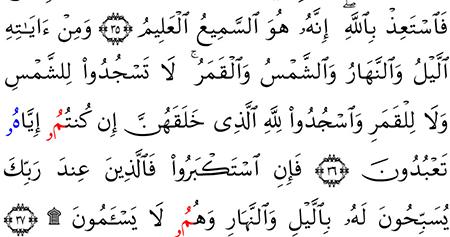 فَٱسۡتَعِذۡ بِٱللَّهِۖ إِنَّهُۥ هُوَ ٱلسَّمِيعُ ٱلۡعَلِيمُ ۝٣٥ وَمِنۡ ءَايَٰتِهِ
ٱلَّيۡلُ وَٱلنَّهَارُ وَٱلشَّمۡسُ وَٱلۡقَمَرُۚ لَا تَسۡجُدُواْ لِلشَّمۡسِ
وَلَا لِلۡقَمَرِ وَٱسۡجُدُواْ لِلَّهِ ٱلَّذِى خَلَقَهُنَّ إِن كُنتُمُۥ إِيَّاهُۥ
تَعۡبُدُونَ ۝٣٦ فَإِنِ ٱسۡتَكۡبَرُواْ فَٱلَّذِينَ عِندَ رَبِّكَ
يُسَبِّحُونَ لَهُۥ بِٱلَّيۡلِ وَٱلنَّهَارِ وَهُمُۥ لَا يَسۡـَٔمُونَ ۩ ۝٣٧